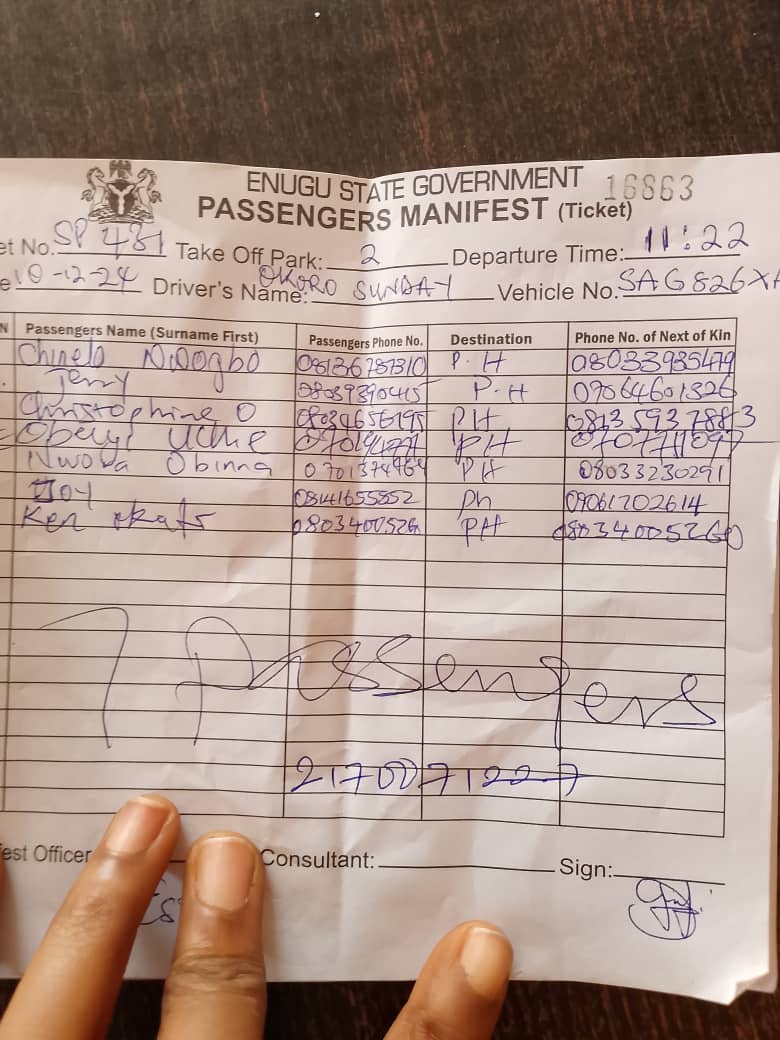 ENUGU STATE GOVERNMENT 16863
PASSENGERS MANIFEST (Ticket)
et No. SP 481 Take Off Park: 2 Departure Time: 11:22
e 10-12-24 Driver's Name: OKORO SUNDAY Vehicle No. SAG826XA
N Passengers Name (Surname First) Passengers Phone No. Destination Phone No. of Next of Kin
Chinelo Nwogbo 08136787310 P.H 08033935479
Jerry 08039890415 P.H 09064601326
Christophine O 08034656195 PH 08135937883
Obeyi Uche PH
Nwoba Obinna 0701374964 PH 08033230291
Joy 08141655852 Ph 09061702614
Ken okafr 0803400526 PH 08034005260
7 Passengers
2170071227
est Officer Consultant: Sign: